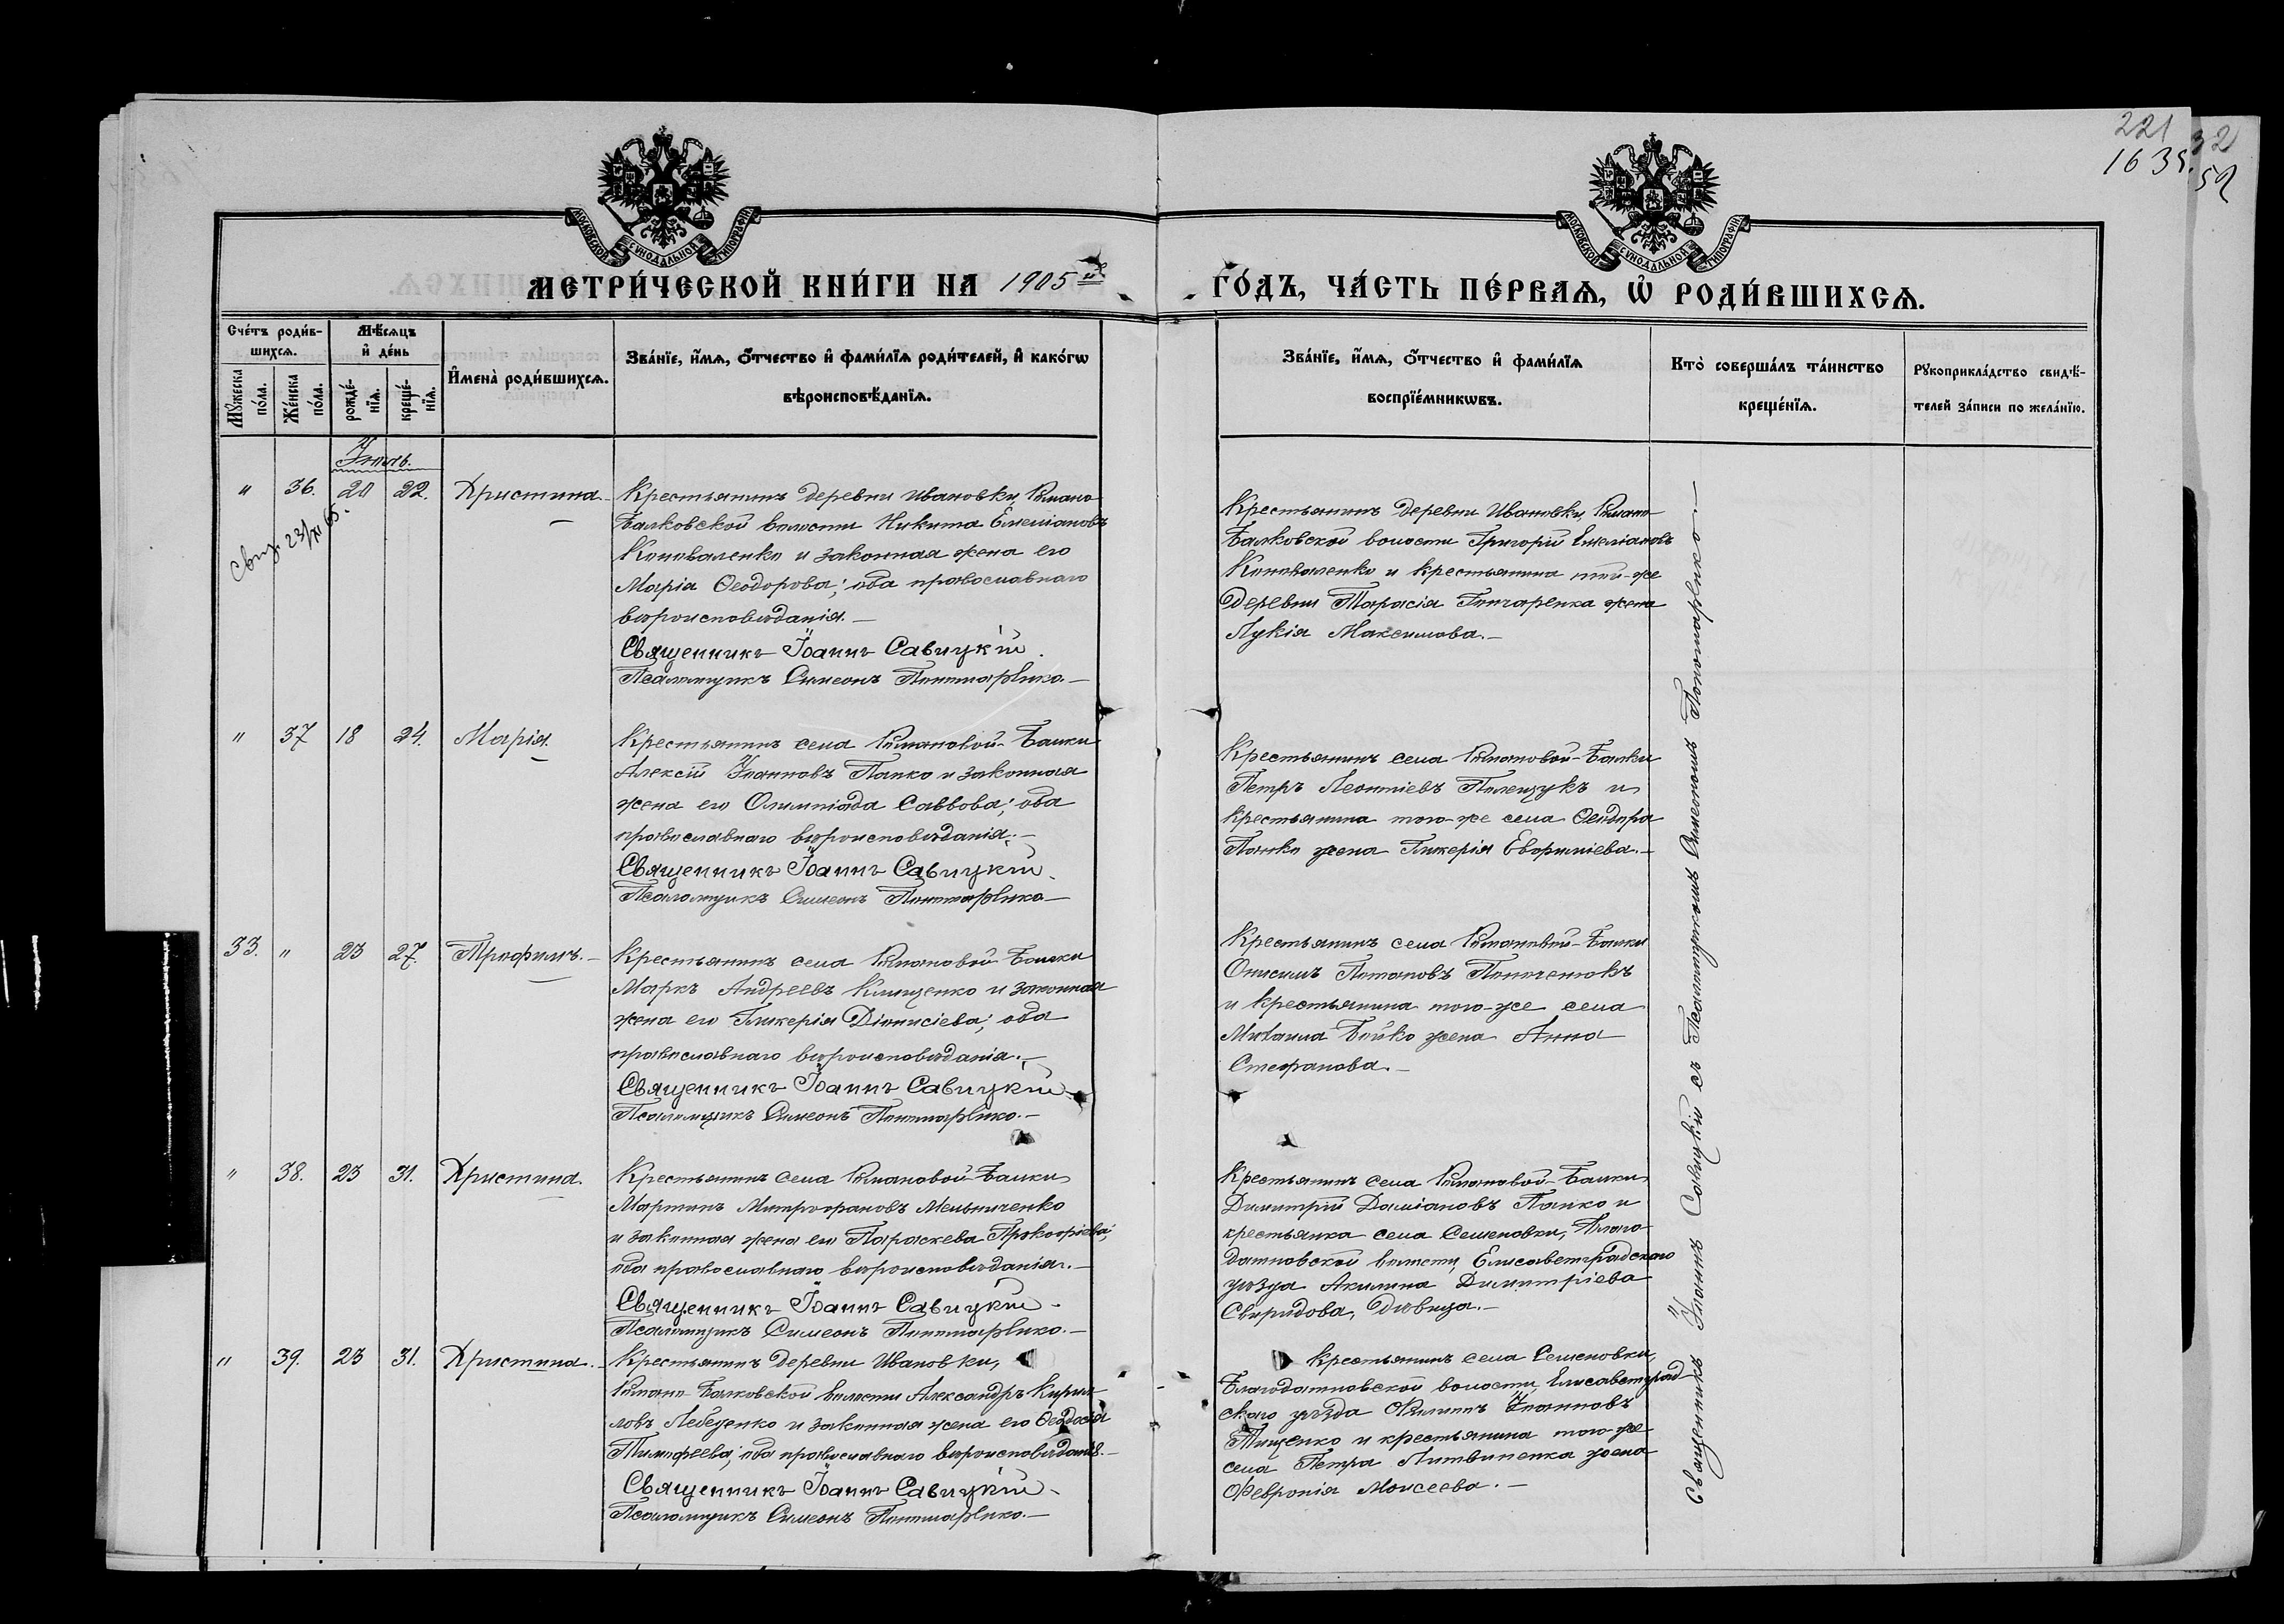 221
1635.
32
52
МОСКОВСКОЙ СѴНОДАЛЬНОЙ ТИПОГРАФІИ
МОСКОВСКОЙ СѴНОДАЛЬНОЙ ТИПОГРАФІИ
МЕТРИ́ЧЕСКОЙ КНИ́ГИ НА 1905 й
ГО́ДЪ, ЧА́СТЬ ПЕ́РВАѦ, Ѡ҆ РОДИ́ВШИХСѦ.
Сче́тъ роди́в-
шихсѧ.
Мѣ́сѧцъ
и҆ де́нь
Мꙋ́жеска по́ла.
Же́нска по́ла.
рожде́-
нїѧ.
креще́-
нїѧ.
И҆мена̀ роди́вшихсѧ.
Зва́нїе, и҆́мѧ, ѻ҆́тчество и҆ фами́лїѧ роди́телей, и҆ како́гѡ
вѣроисповѣ́данїѧ.
Зва́нїе, и҆́мѧ, ѻ҆́тчество и҆ фами́лїѧ
воспрїе́мникѡвъ.
Кто̀ соверша́лъ та́инство
креще́нїѧ.
Рꙋкоприкла́дство свидѣ́-
телей за́писи по жела́нїю.
Іюль.
" 36. 20 22. Христина.
Крестьянинъ деревни Ивановки, Романо-
Балковской волости Никита Емеліановъ
Коноваленко и законная жена его
Марія Ѳеодорова; оба православнаго
вѣроисповѣданія.—
Священникъ Іоаннъ Савицкій.
Псаломщикъ Симеонъ Пономаренко.—
Крестьянинъ деревни Ивановки, Романо-
Балковской волости Григорій Емеліановъ
Коноваленко и крестьянина той-же
деревни Тарасія Гончаренка жена
Лукія Максимова.—
" 37 18 24. Марія.
Крестьянинъ села Романовой-Балки
Алексій Іоанновъ Папко и законная
жена его Олимпіада Саввова; оба
православнаго вѣроисповѣданія.—
Священникъ Іоаннъ Савицкій.
Псаломщикъ Симеонъ Пономаренко—
Крестьянинъ села Романовой-Балки
Петръ Леонтіевъ и
крестьянина того-же села Ѳеодора
жена Гликерія
33. " 23 27. Трофимъ.—
Крестьянинъ села Романовой-Балки
Маркъ Андреевъ Клищенко и законная
жена его Гликерія Діонисіева; оба
православнаго вѣроисповѣданія.—
Священникъ Іоаннъ Савицкій.
Псаломщикъ Симеонъ Пономаренко.—
Крестьянинъ села Романовой-Балки
Онисимъ Потаповъ
и крестьянина того-же села
Михаила Бойко жена Анна
Стефанова.—
" 38. 23 31. Христина.
Крестьянинъ села Романовой-Балки
Мартинъ Митрофановъ Мельниченко
и законная жена его Параскева Прокофіева;
оба православнаго вѣроисповѣданія.—
Священникъ Іоаннъ Савицкій.
Псаломщикъ Симеонъ Пономаренко.—
Крестьянинъ села Романовой-Балки
Димитрій Даміановъ Папко и
крестьянка села Семеновки, Благо-
датновской волости, Елисаветградскаго
уѣзда Акилина Димитріева
Свиридова, дѣвица.—
" 39. 23 31. Христина.
Крестьянинъ деревни Ивановки,
Романо-Балковской волости Александръ Кирил-
ловъ Лебеденко и законная жена его Ѳеодосія
Тимофеева; оба православнаго вѣроисповѣданія.—
Священникъ Іоаннъ Савицкій.
Псаломщикъ Симеонъ Пономаренко.—
Крестьянинъ села Семеновки,
Благодатновской волости, Елисаветград-
скаго уѣзда Филиппъ Іоанновъ
Тищенко и крестьянина того-же
села Петра Литвиненка жена
Февронія Моисеева.—
Священникъ Іоаннъ Савицкій съ Псаломщикомъ Симеономъ Пономаренко.—